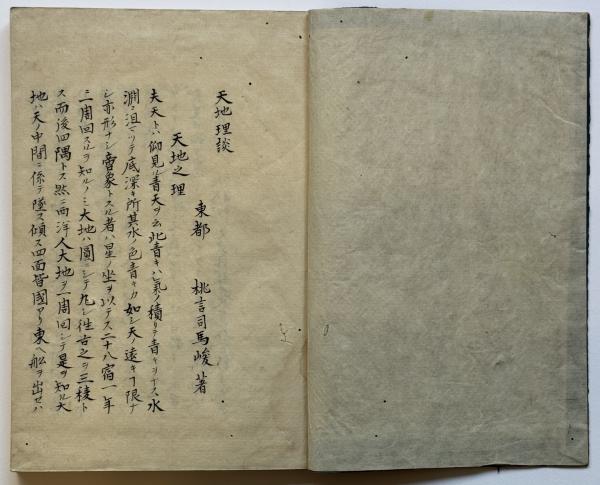 天地理談
東都 桃言司馬峻著
天地之理
夫天トハ仰見ル青天ヲ云此青キハ氣ノ積リテ青キヲナス水
淵ニ沮ツテ底深キ所其水ノ色青キカ如シ天ノ遠キヿ限ナ
シ亦形ナシ 象トスル者ハ星ノ坐ヲ以テス二十八宿一年
ニ一周回スルヲ知ルノミ大地ハ圓ニシテ丸シ徃古之ヲ三稜ト
ス而後四隅トス然ニ西洋人大地ヲ一周回シテ是ヲ知ル大
地ハ天ノ中間ニ係テ墜ス傾ス四面皆國アリ東ヘ舩ヲ出セハ